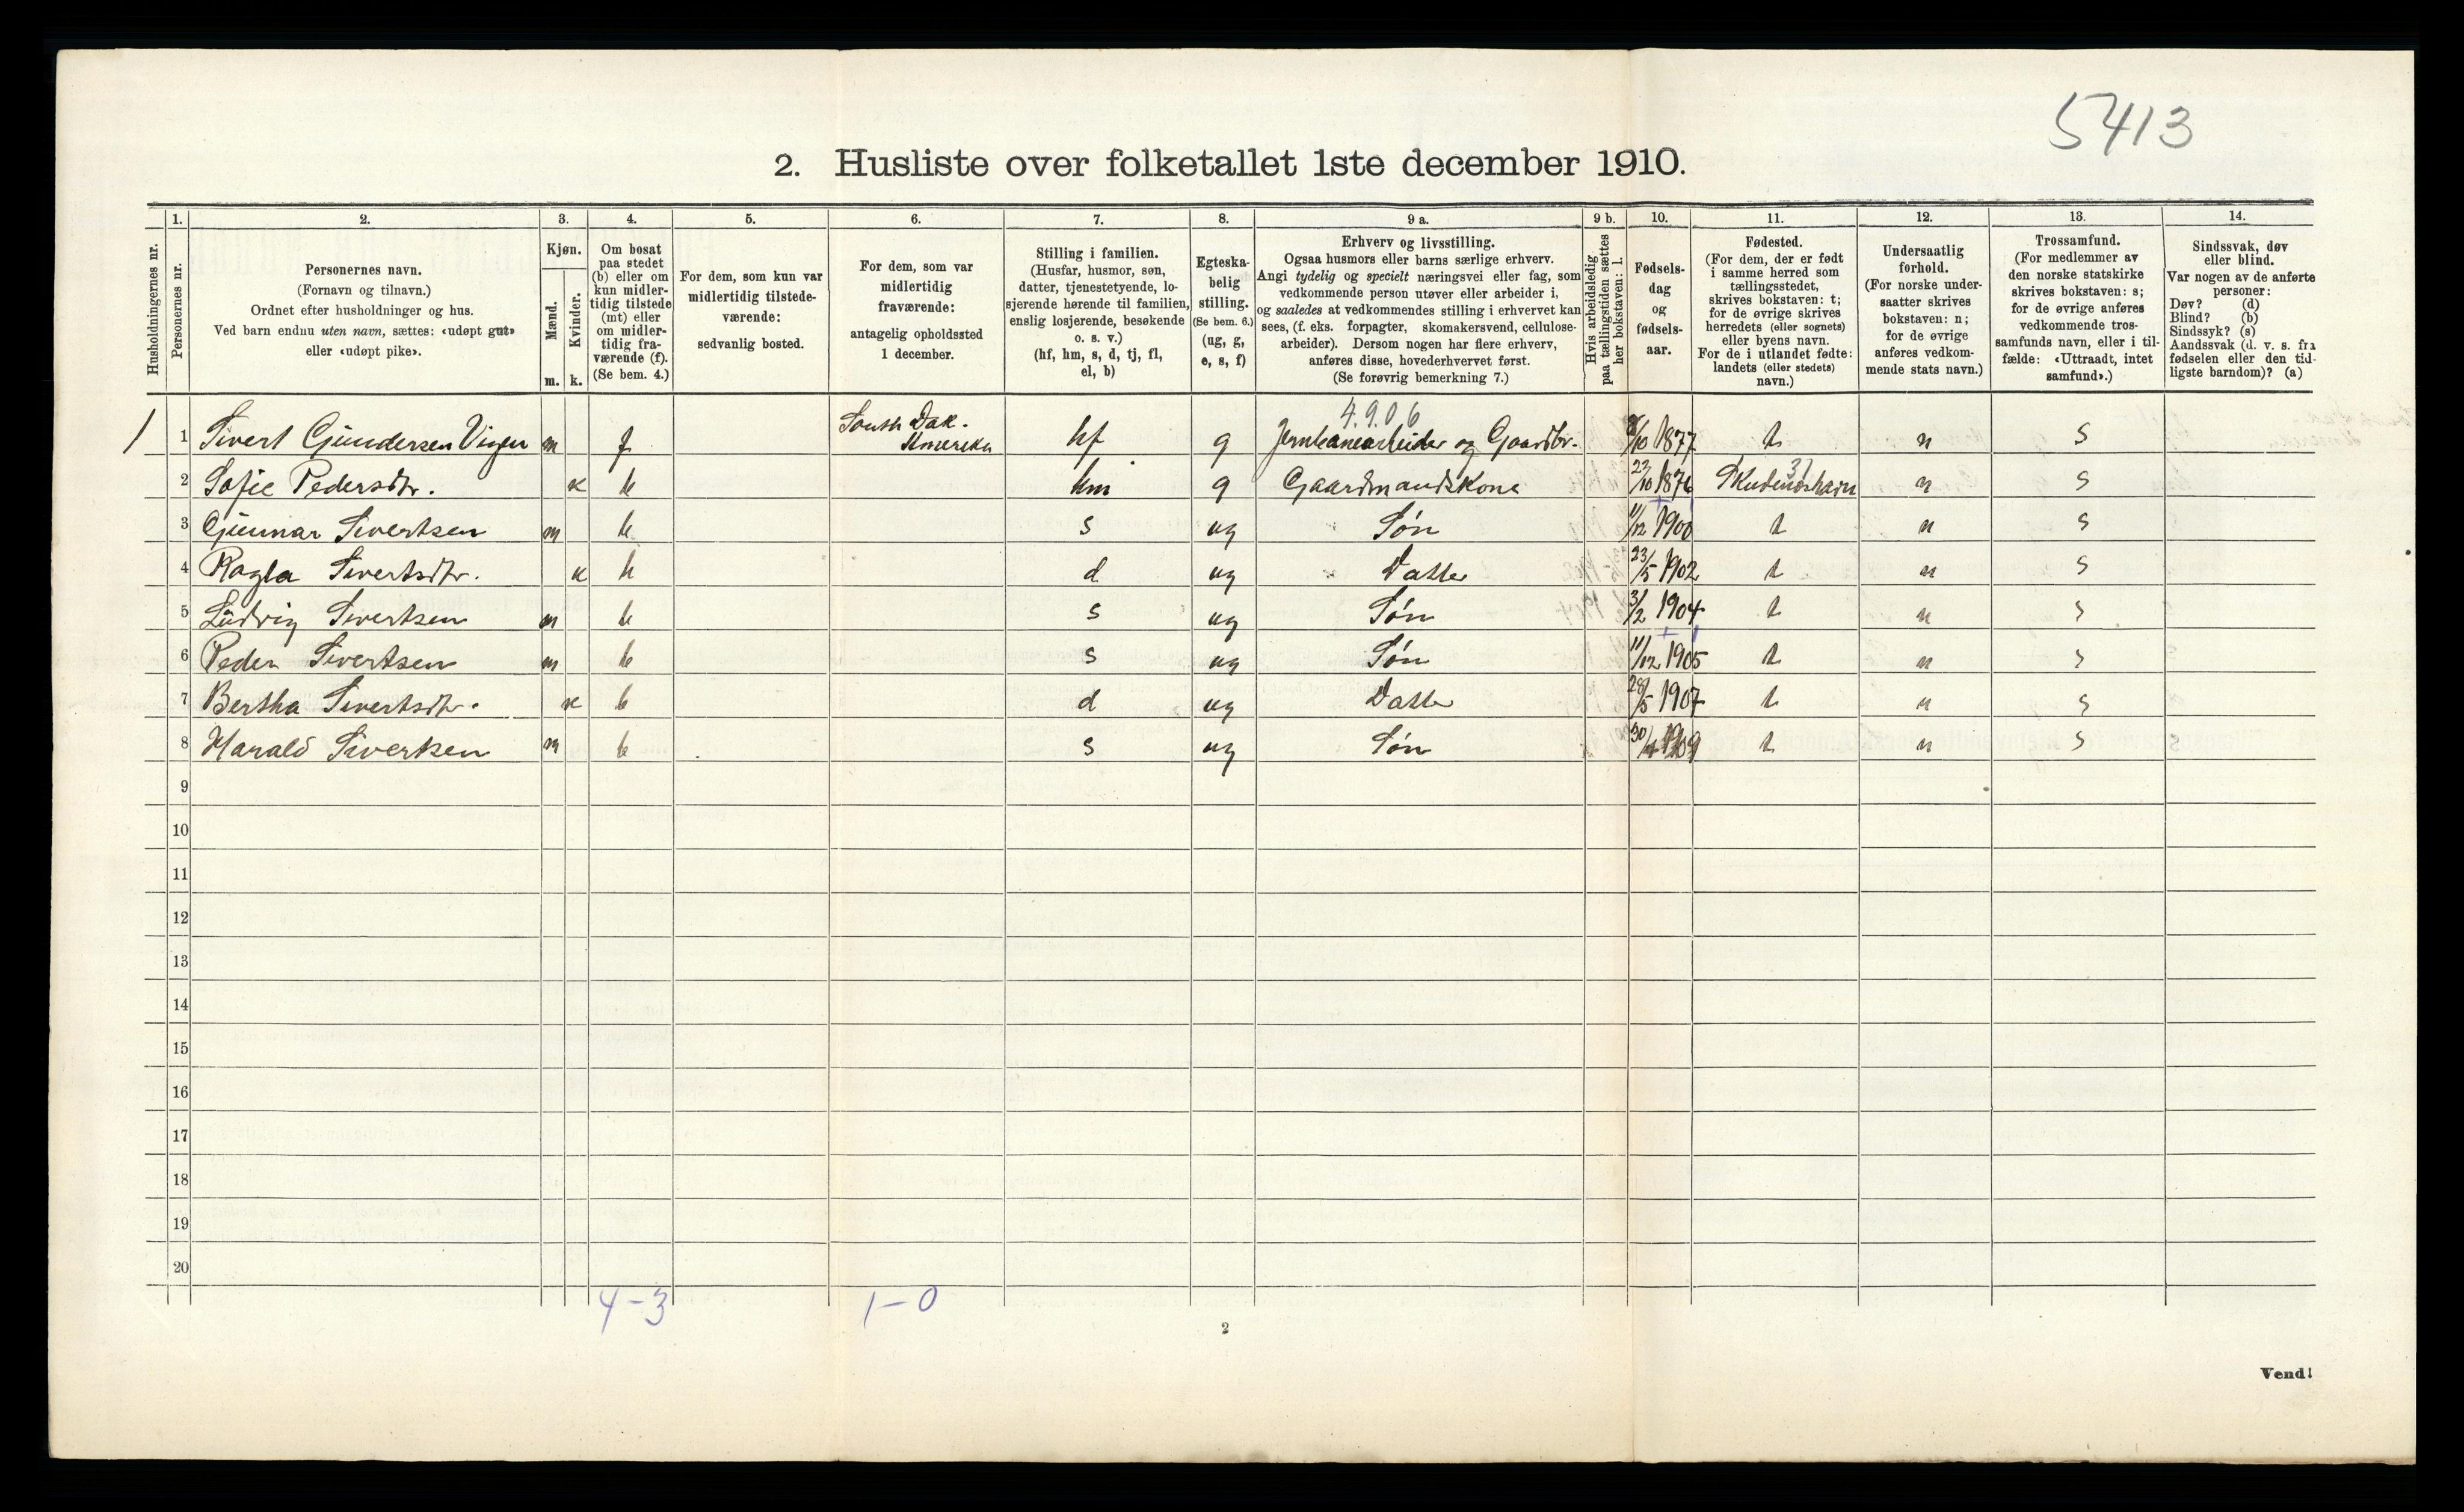 5413
2. Husliste over folketallet 1ste december 1910.
1. 2. 3. 4. 5. 6. 7. 8. 9 a. 9 b. 10. 11. 12. 13. 14.
Husholdningernes nr.
Personernes nr.
Personernes navn.
(Fornavn og tilnavn.)
Ordnet efter husholdninger og hus.
Ved barn endnu uten navn, sættes: «udøpt gut»
eller «udøpt pike».
Kjøn.
Mænd.
Kvinder.
m. k.
Om bosat
paa stedet
(b) eller om
kun midler-
tidig tilstede
(mt) eller
om midler-
tidig fra-
værende (f).
(Se bem. 4.)
For dem, som kun var
midlertidig tilstede-
værende:
sedvanlig bosted.
For dem, som var
midlertidig
fraværende:
antagelig opholdssted
1 december.
Stilling i familien.
(Husfar, husmor, søn,
datter, tjenestetyende, lo-
sjerende hørende til familien,
enslig losjerende, besøkende
o. s. v.)
(hf, hm, s, d, tj, fl,
el, b)
Egteska-
belig
stilling.
(Se bem. 6.)
(ug, g,
e, s, f)
Erhverv og livsstilling.
Ogsaa husmors eller barns særlige erhverv.
Angi tydelig og specielt næringsvei eller fag, som
vedkommende person utøver eller arbeider i,
og saaledes at vedkommendes stilling i erhvervet kan
sees, (f. eks. forpagter, skomakersvend, cellulose-
arbeider). Dersom nogen har flere erhverv,
anføres disse, hovederhvervet først.
(Se forøvrig bemerkning 7.)
Hvis arbeidsledig
paa tællingstiden sættes
her bokstaven: l.
Fødsels-
dag
og
fødsels-
aar.
Fødested.
(For dem, der er født
i samme herred som
tællingsstedet,
skrives bokstaven: t;
for de øvrige skrives
herredets (eller sognets)
eller byens navn.
For de i utlandet fødte:
landets (eller stedets)
navn.)
Undersaatlig
forhold.
(For norske under-
saatter skrives
bokstaven: n;
for de øvrige
anføres vedkom-
mende stats navn.)
Trossamfund.
(For medlemmer av
den norske statskirke
skrives bokstaven: s;
for de øvrige anføres
vedkommende tros-
samfunds navn, eller i til-
fælde: «Uttraadt, intet
samfund».)
Sindssvak, døv
eller blind.
Var nogen av de anførte
personer:
Døv? (d)
Blind? (b)
Sindssyk? (s)
Aandssvak (d. v. s. fra
fødselen eller den tid-
ligste barndom)? (a)
South Dak. 4.9.06
1 1 Sivert Gundersen m f Amerika hf g Jernbanearbeider og Gaardbr. 8/10 1877 t n s
2 Sofie Pedersdtr. k b hm g Gaardmandskone 23/10 1876 Skudeneshavn n s
3 Gunnar Sivertsen m b s ug Søn 11/12 1900 t n s
4 Ragla Sivertsdtr. k b d ug Datter 23/5 1902 t n s
5 Ludvig Sivertsen m b s ug Søn 3/2 1904 t n s
6 Peder Sivertsen m b s ug Søn 11/12 1905 t n s
7 Bertha Sivertsdtr. k b d ug Datter 28/5 1907 t n s
8 Harald Sivertsen m b s ug Søn 30/4 1909 t n s
9
10
11
12
13
14
15
16
17
18
19
20
4-3 1-0
2
Vend!